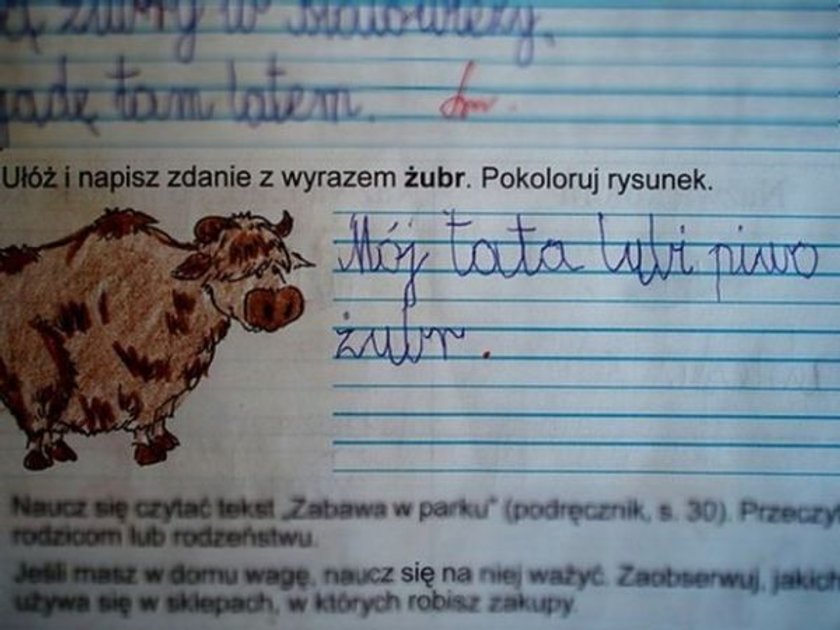 żubry w Białowieży,
jadę tam latem.
Ułóż i napisz zdanie z wyrazem żubr. Pokoloruj rysunek.
Mój tata lubi piwo
żubr.
Naucz się czytać tekst „Zabawa w parku" (podręcznik, s. 30). Przeczyt
rodzicom lub rodzeństwu.
Jeśli masz w domu wagę, naucz się na niej ważyć. Zaobserwuj, jakich
używa się w sklepach, w których robisz zakupy.